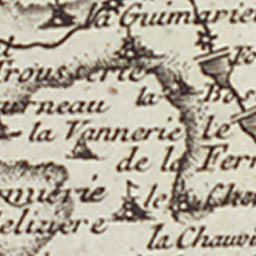 la Guimarie
Trousserie
urneau la Bos
la Vannerie le
de la Fer
le Cha
eliziere
la Chauvi